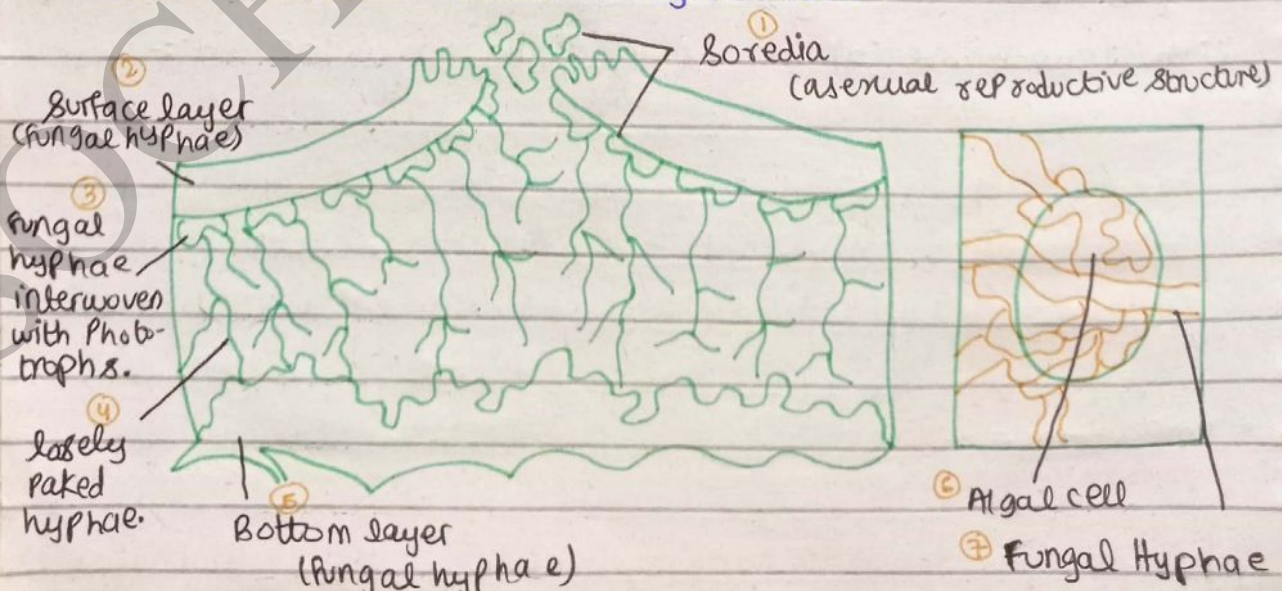 ① Soredia
(asexual reproductive structure)
② Surface layer
(fungal hyphae)
③ Fungal
hyphae
interwoven
with Photo-
trophs.
④ losely
paked
hyphae.
⑤ Bottom layer
(fungal hyphae)
⑥ Algal cell
⑦ Fungal Hyphae